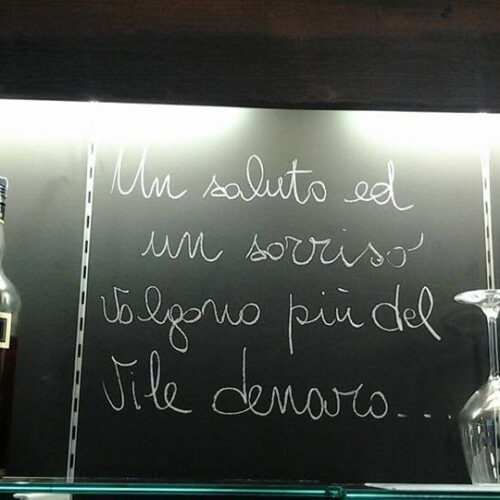 Un saluto ed
un sorriso
valgono più del
vile denaro...